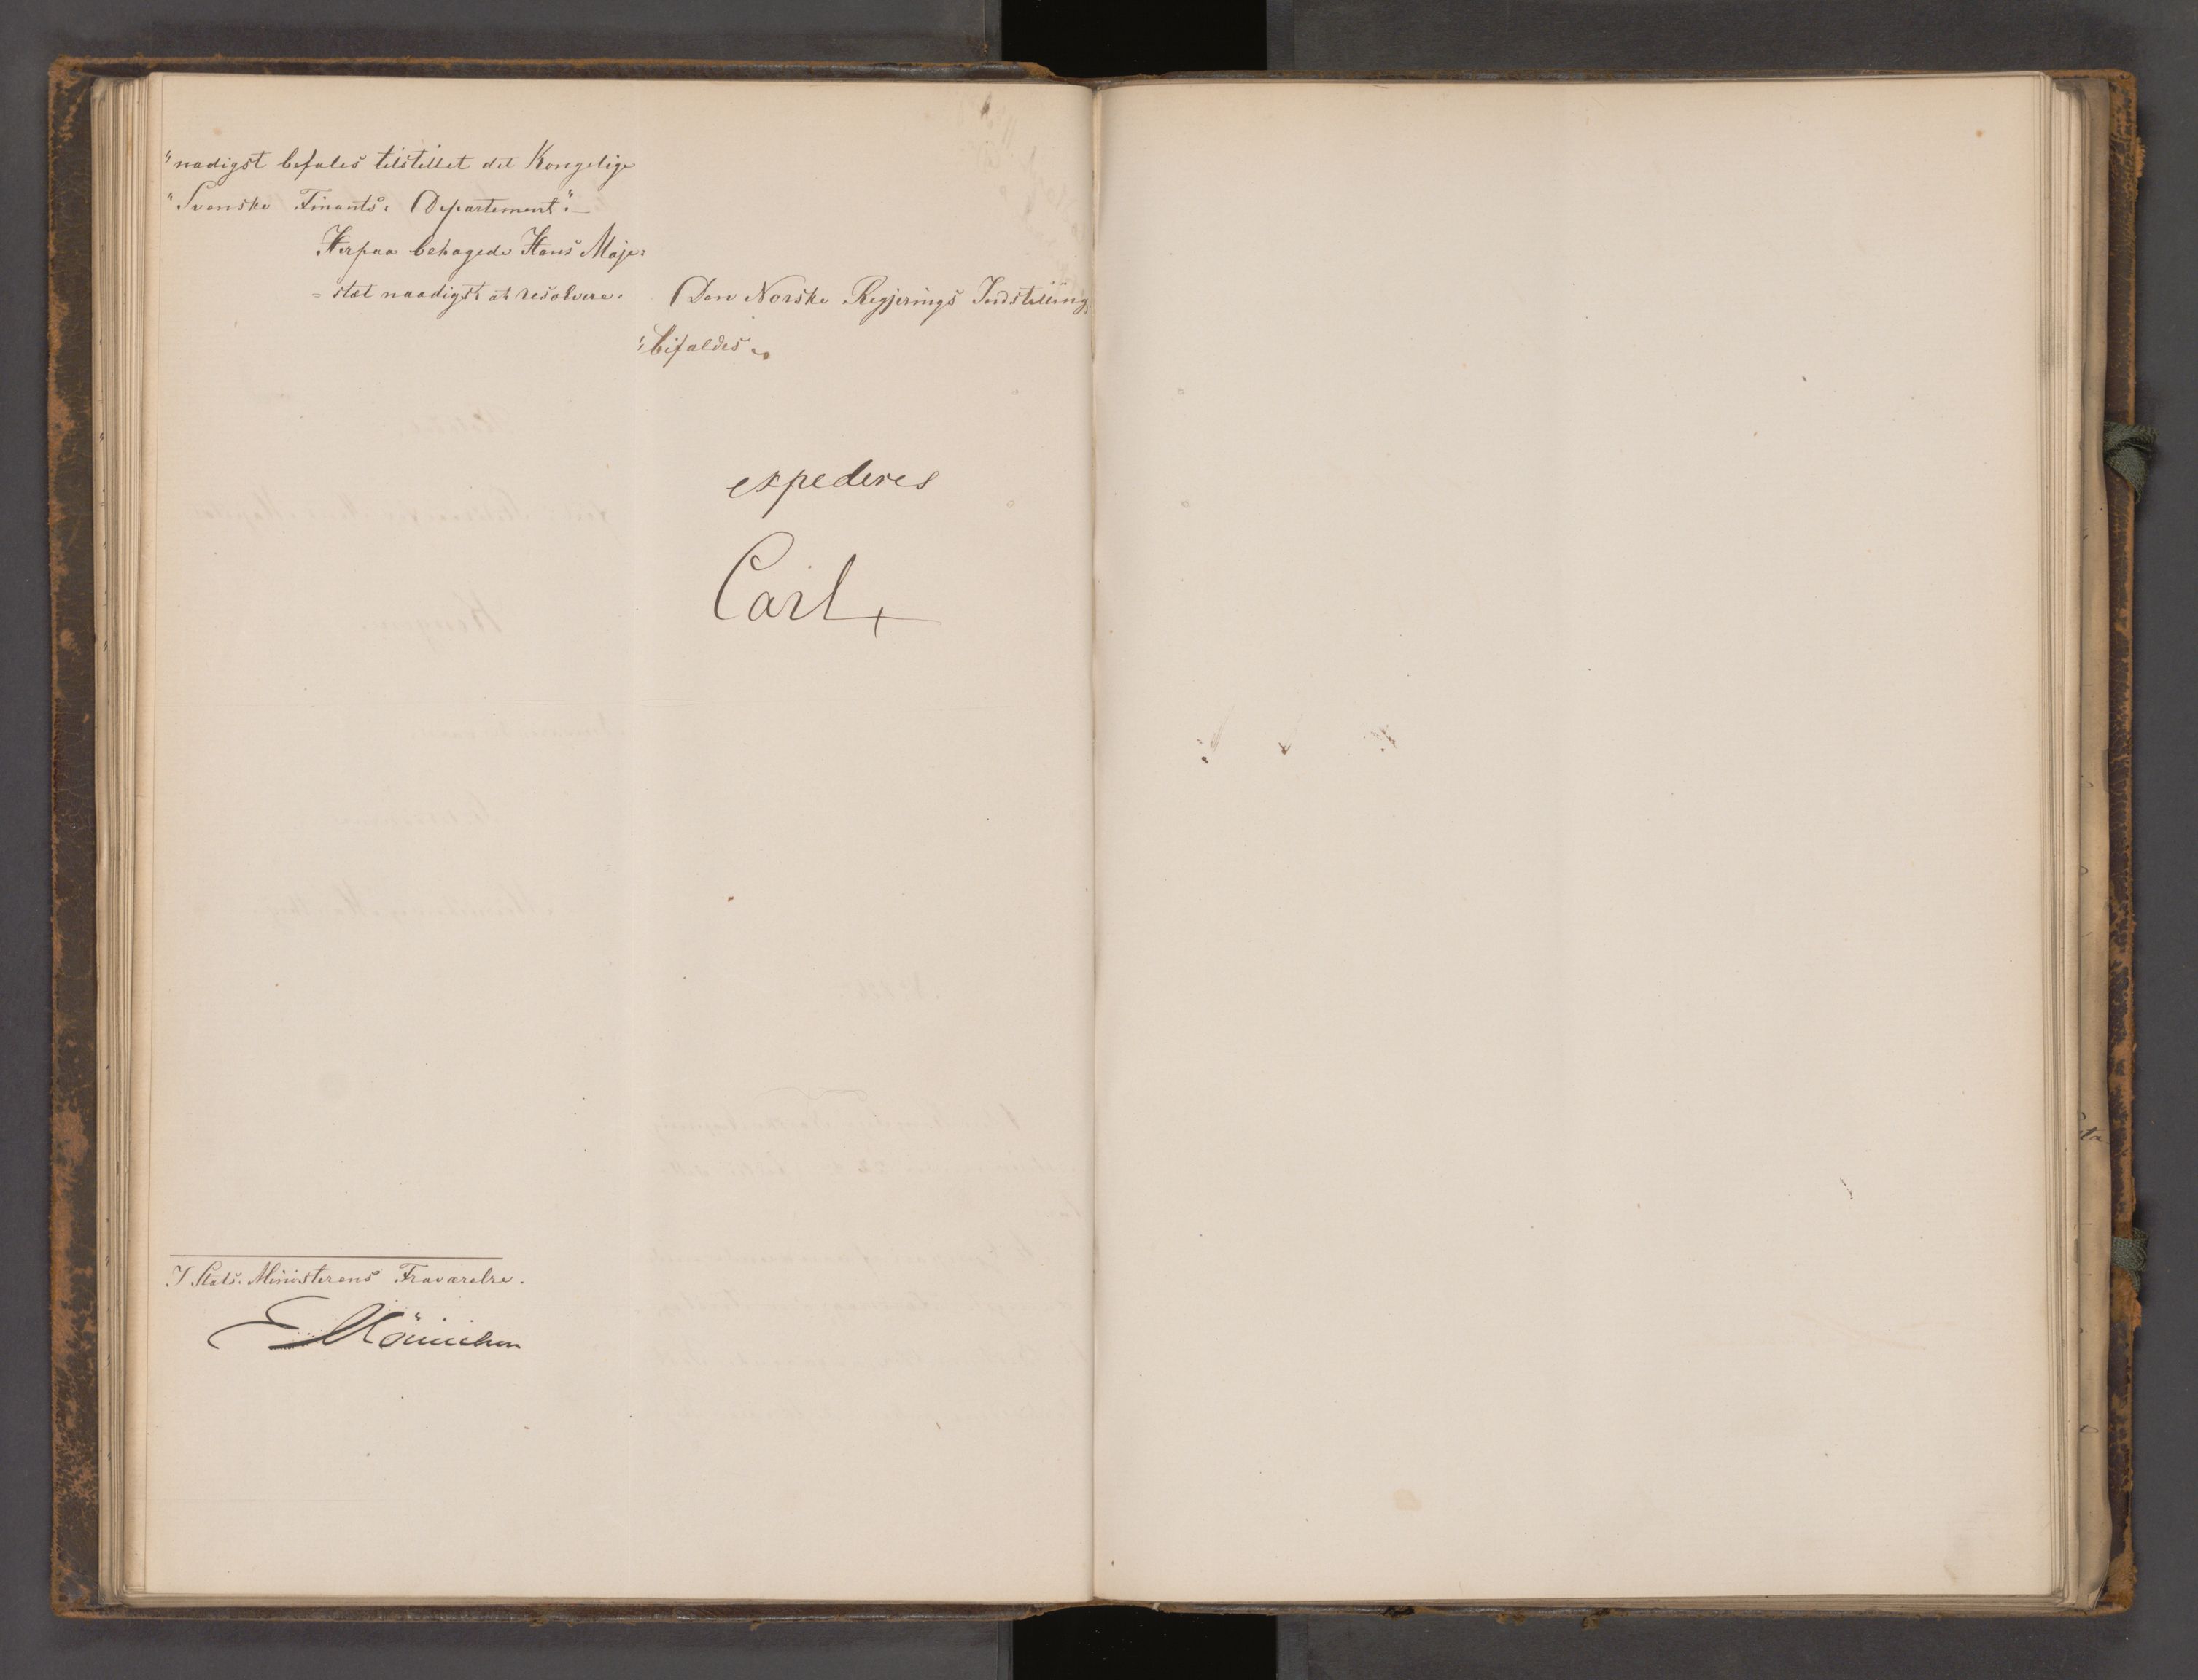 "nadigst befales tilstillet det Kongelige
"Svenske Finants= Departement".—
Herpaa behagede Hans Maje=
=stæt naadigst at resolvere:
"Den Norske Regjerings Indstilling
"bifaldes"
expederes
Carl
I Stats-Ministerens Fraværelse.